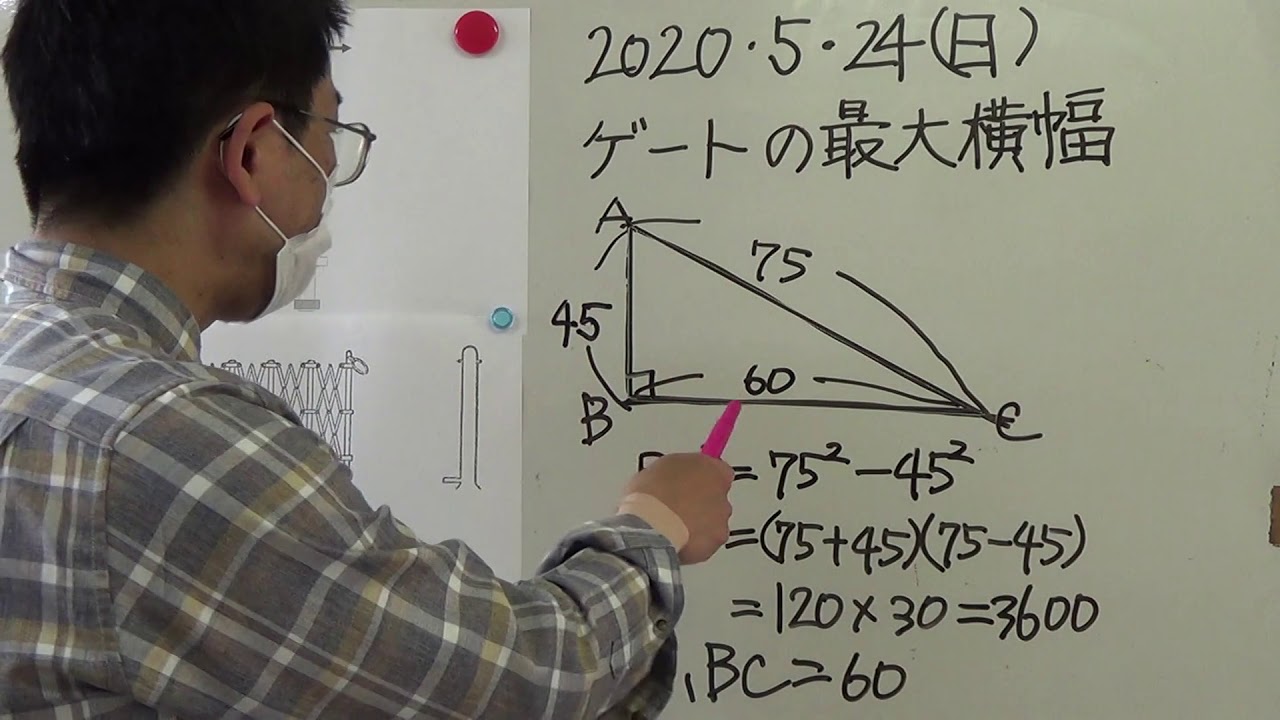 2020・5・24(日)
ゲートの最大横幅
A
75
45
60
B
C
=75²-45²
=(75+45)(75-45)
=120×30=3600
BC=60